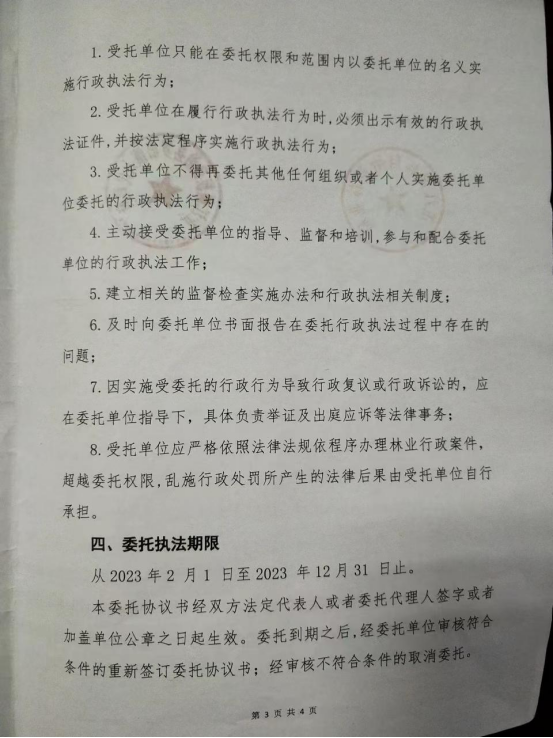 1.受托单位只能在委托权限和范围内以委托单位的名义实
施行政执法行为；
2.受托单位在履行行政执法行为时,必须出示有效的行政执
法证件,并按法定程序实施行政执法行为；
3.受托单位不得再委托其他任何组织或者个人实施委托单
位委托的行政执法行为；
4.主动接受委托单位的指导、监督和培训,参与和配合委托
单位的行政执法工作；
5.建立相关的监督检查实施办法和行政执法相关制度；
6.及时向委托单位书面报告在委托行政执法过程中存在的
问题；
7.因实施受委托的行政行为导致行政复议或行政诉讼的，应
在委托单位指导下，具体负责举证及出庭应诉等法律事务；
8.受托单位应严格依照法律法规依程序办理林业行政案件，
超越委托权限,乱施行政处罚所产生的法律后果由受托单位自行
承担。
四、委托执法期限
从2023年2月1日至2023年12月31日止。
本委托协议书经双方法定代表人或者委托代理人签字或者
加盖单位公章之日起生效。委托到期之后,经委托单位审核符合
条件的重新签订委托协议书；经审核不符合条件的取消委托。
第3页共4页